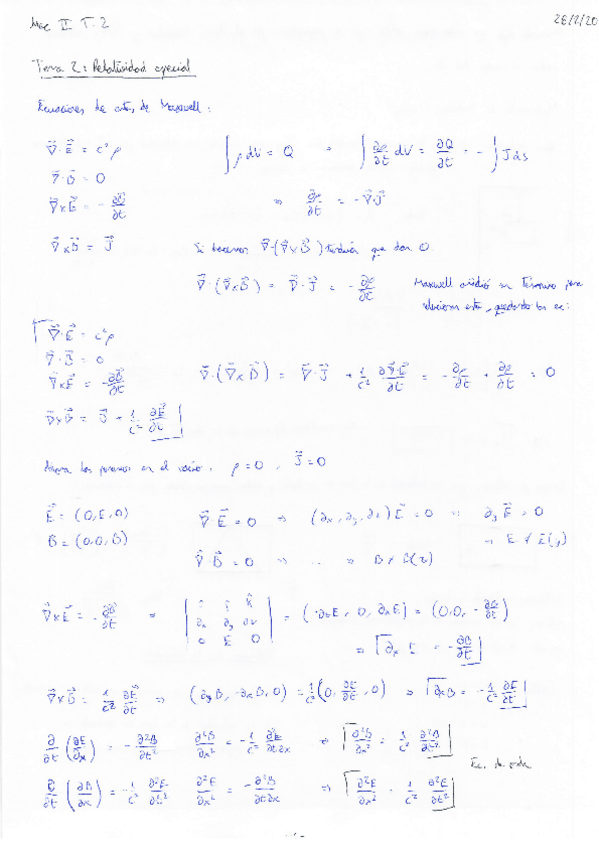 Mec II T.2 26/2/20
Tema 2: Relatividad especial
Ecuaciones de de Maxwell:
∇⃗·E⃗ = c²ρ ∫ρdV = Q ∫ ∂ρ/∂t dV = ∂Q/∂t = -∫J ds
∇⃗·B⃗ = 0
∇⃗×E⃗ = -∂B⃗/∂t ⇒ ∂ρ/∂t = -∇⃗·J⃗
∇⃗×B⃗ = J⃗ Si hacemos ∇⃗·(∇⃗×B⃗) tendría que dar 0.
∇⃗·(∇⃗×B⃗) = ∇⃗·J⃗ = -∂ρ/∂t Maxwell añadió un término para
esto, quedando las ec:
∇⃗·E⃗ = c²ρ
∇⃗·B⃗ = 0
∇⃗×E⃗ = -∂B⃗/∂t ∇⃗·(∇⃗×B⃗) = ∇⃗·J⃗ + 1/c² ∂∇⃗·E⃗/∂t = -∂ρ/∂t + ∂ρ/∂t = 0
∇⃗×B⃗ = J⃗ + 1/c² ∂E⃗/∂t
Ahora las ponemos en el vacío, ρ=0, J⃗=0
E⃗ = (0,E,0) ∇⃗·E⃗ = 0 ⇒ (∂x, ∂y, ∂z)E⃗ = 0 ⇒ ∂yE⃗ = 0
B⃗ = (0,0,B) ⇒ E ≠ E(y)
∇⃗·B⃗ = 0 ⇒ ... ⇒ B ≠ B(z)
∇⃗×E⃗ = -∂B⃗/∂t ⇒ | î ĵ k̂ | = (-∂zE, 0, ∂xE) = (0,0,-∂B/∂t)
| ∂x ∂y ∂z |
| 0 E 0 | ⇒ ∂xE = -∂B/∂t
∇⃗×B⃗ = 1/c² ∂E⃗/∂t ⇒ (∂yB, -∂xB, 0) = 1/c² (0, ∂E/∂t, 0) ⇒ ∂xB = -1/c² ∂E/∂t
∂/∂t (∂E/∂x) = -∂²B/∂t² ∂²B/∂x² = -1/c² ∂²E/∂t∂x ⇒ ∂²B/∂x² = 1/c² ∂²B/∂t²
Ec. de onda
∂/∂t (∂B/∂x) = -1/c² ∂²E/∂t² ∂²E/∂x² = -∂²B/∂t∂x ⇒ ∂²E/∂x² = 1/c² ∂²E/∂t²